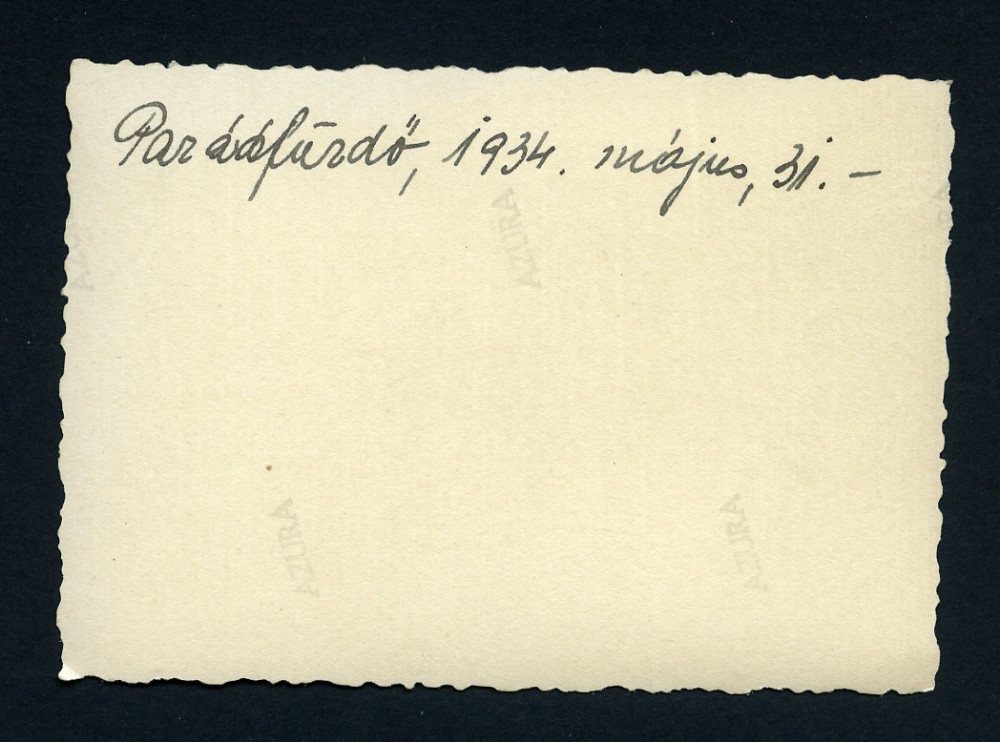 Parádfürdő, 1934. május, 31. –
AZURA
AZURA
AZURA